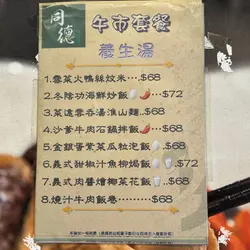 同德
午市套餐
養生湯
1.雪菜火鴨絲炆米...$68
2.冬陰功海鮮炒飯 ...$72
3.菜遠雲吞湯淮山麵..$68
4.沙爹牛肉石鍋拌飯...$68
5.金銀蛋紫菜瓜粒泡飯...$68
6.義式甜椒汁魚柳焗飯 ...$72
7.義式肉醬燴椰菜花飯 ...$68
8.燒汁牛肉飯卷......$68